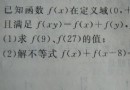 已知函数 f(x)在定义域(0,+
且满足 f(xy)=f(x)+f(y),
(1)求 f(9),f(27)的值;
(2)解不等式 f(x)+f(x-8)